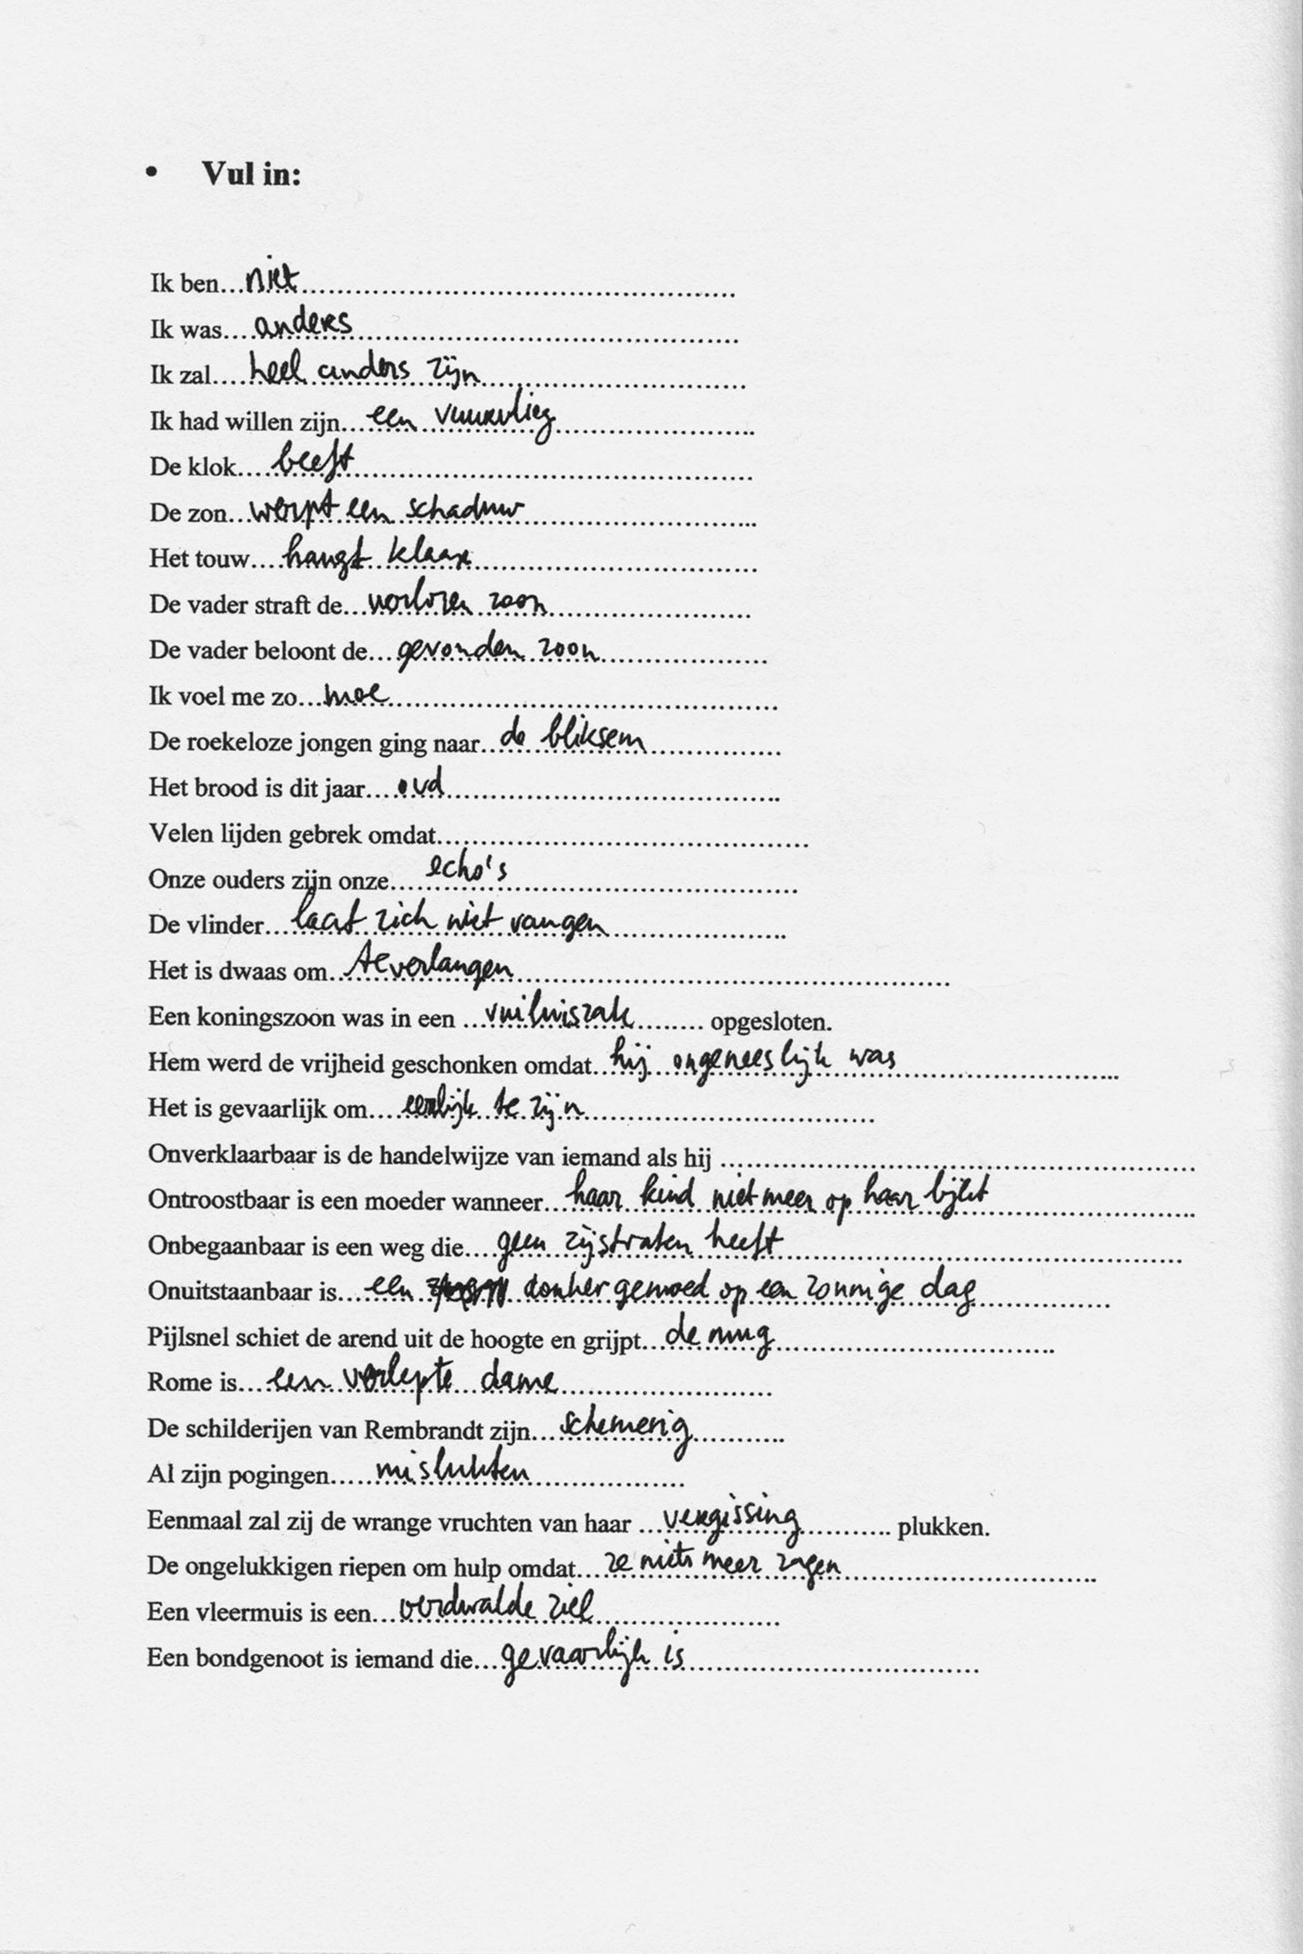 • Vul in:
Ik ben...niet..............................
Ik was....anders..............................
Ik zal....heel anders zijn..............................
Ik had willen zijn...een vuurvlieg....................
De klok....beeft..............................
De zon...werpt een schaduw..............................
Het touw....hangt klaar..............................
De vader straft de...verloren zoon....................
De vader beloont de...gevonden zoon....................
Ik voel me zo...moe..............................
De roekeloze jongen ging naar...de bliksem...............
Het brood is dit jaar....oud..............................
Velen lijden gebrek omdat..............................
Onze ouders zijn onze....echo's..............................
De vlinder...laat zich niet vangen....................
Het is dwaas om...te verlangen..............................
Een koningszoon was in een ...vuilniszak........ opgesloten.
Hem werd de vrijheid geschonken omdat...hij ongeneeslijk was....................
Het is gevaarlijk om....eerlijk te zijn..............................
Onverklaarbaar is de handelwijze van iemand als hij ..............................
Ontroostbaar is een moeder wanneer...haar kind niet meer op haar lijkt....................
Onbegaanbaar is een weg die....geen zijstraten heeft..............................
Onuitstaanbaar is....een donker gemoed op een zonnige dag...............
Pijlsnel schiet de arend uit de hoogte en grijpt...de mug....................
Rome is...een verlepte dame....................
De schilderijen van Rembrandt zijn...schemerig..........
Al zijn pogingen.....mislukten...............
Eenmaal zal zij de wrange vruchten van haar ...vergissing.......... plukken.
De ongelukkigen riepen om hulp omdat...ze niets meer zagen....................
Een vleermuis is een...verdwaalde ziel....................
Een bondgenoot is iemand die....gevaarlijk is..............................